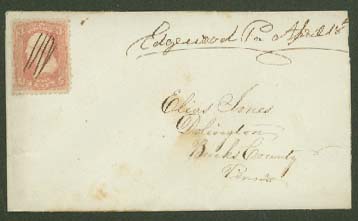 Edgewood Pa April 18th
Elias Jones
Dolington
Bucks County
Penna